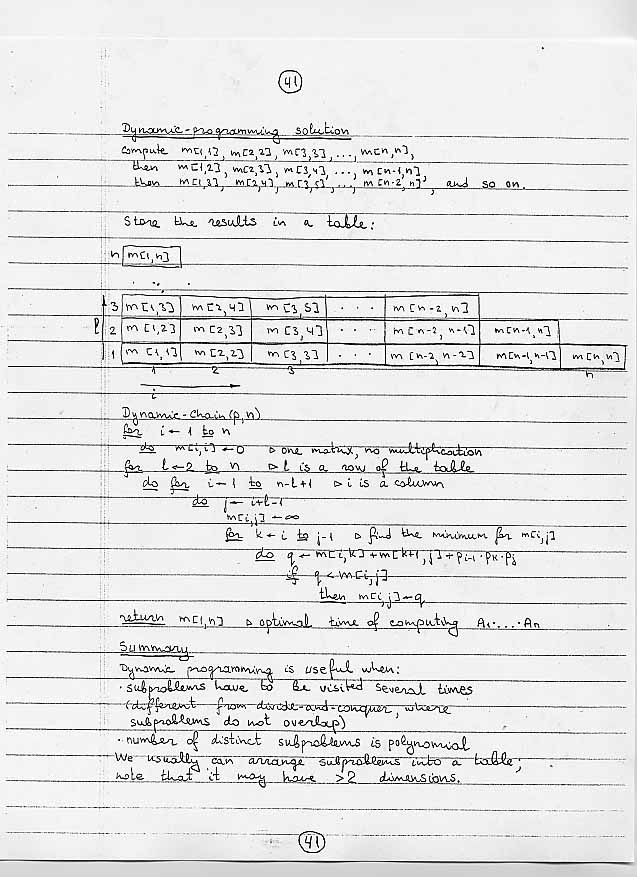 41
Dynamic-programming solution
compute m[1,1], m[2,2], m[3,3], ..., m[n,n],
then m[1,2], m[2,3], m[3,4], ..., m[n-1,n],
then m[1,3], m[2,4], m[3,5], ..., m[n-2,n], and so on.
Store the results in a table:
n m[1,n]
. . . .
3 m[1,3] m[2,4] m[3,5] . . . m[n-2,n]
l 2 m[1,2] m[2,3] m[3,4] . . . m[n-2,n-1] m[n-1,n]
1 m[1,1] m[2,2] m[3,3] . . . m[n-2,n-2] m[n-1,n-1] m[n,n]
1 2 3 n
i
Dynamic-Chain(p,n)
for i ← 1 to n
do m[i,i] ← 0 ▹ one matrix, no multiplication
for l ← 2 to n ▹ l is a row of the table
do for i ← 1 to n-l+1 ▹ i is a column
do j ← i+l-1
m[i,j] ← ∞
for k ← i to j-1 ▹ find the minimum for m[i,j]
do q ← m[i,k] + m[k+1,j] + pi-1 · pk · pj
if q < m[i,j]
then m[i,j] ← q
return m[1,n] ▹ optimal time of computing A1 · ... · An
Summary
Dynamic programming is useful when:
· subproblems have to be visited several times
(different from divide-and-conquer, where
subproblems do not overlap)
· number of distinct subproblems is polynomial
We usually can arrange subproblems into a table;
note that it may have >2 dimensions.
41